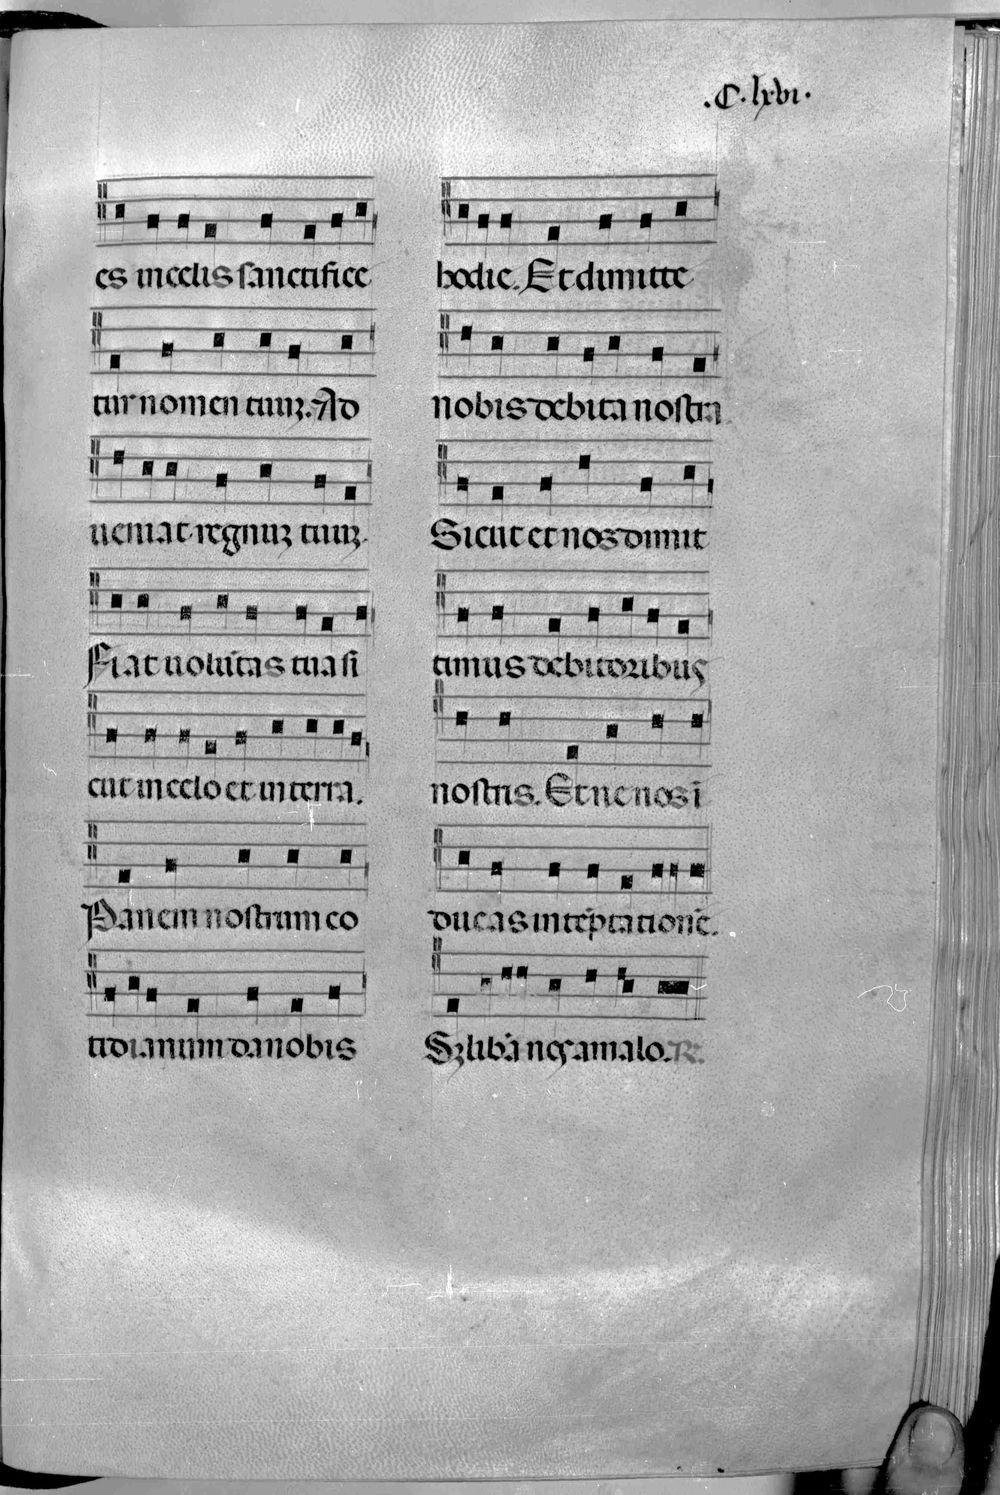 .C.lxvi.
es in celis sanctifice
tur nomen tuuʒ. Ad
ueniat regnuʒ tuuʒ.
Fiat uolūtas tua si
cut in celo et in terra.
Panem nostrum co
tidianum da nobis
hodie. Et dimitte
nobis debita nostra
Sicut et nos dimit
timus debitoribus
nostris. Et ne nos ī
ducas in tēptationē.
Sʒ libā nos a malo. R.